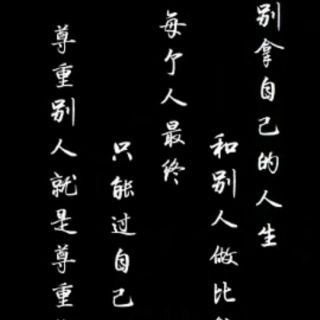 别拿自己的人生
和别人做比
每个人最终
只能过自己
尊重别人就是尊重